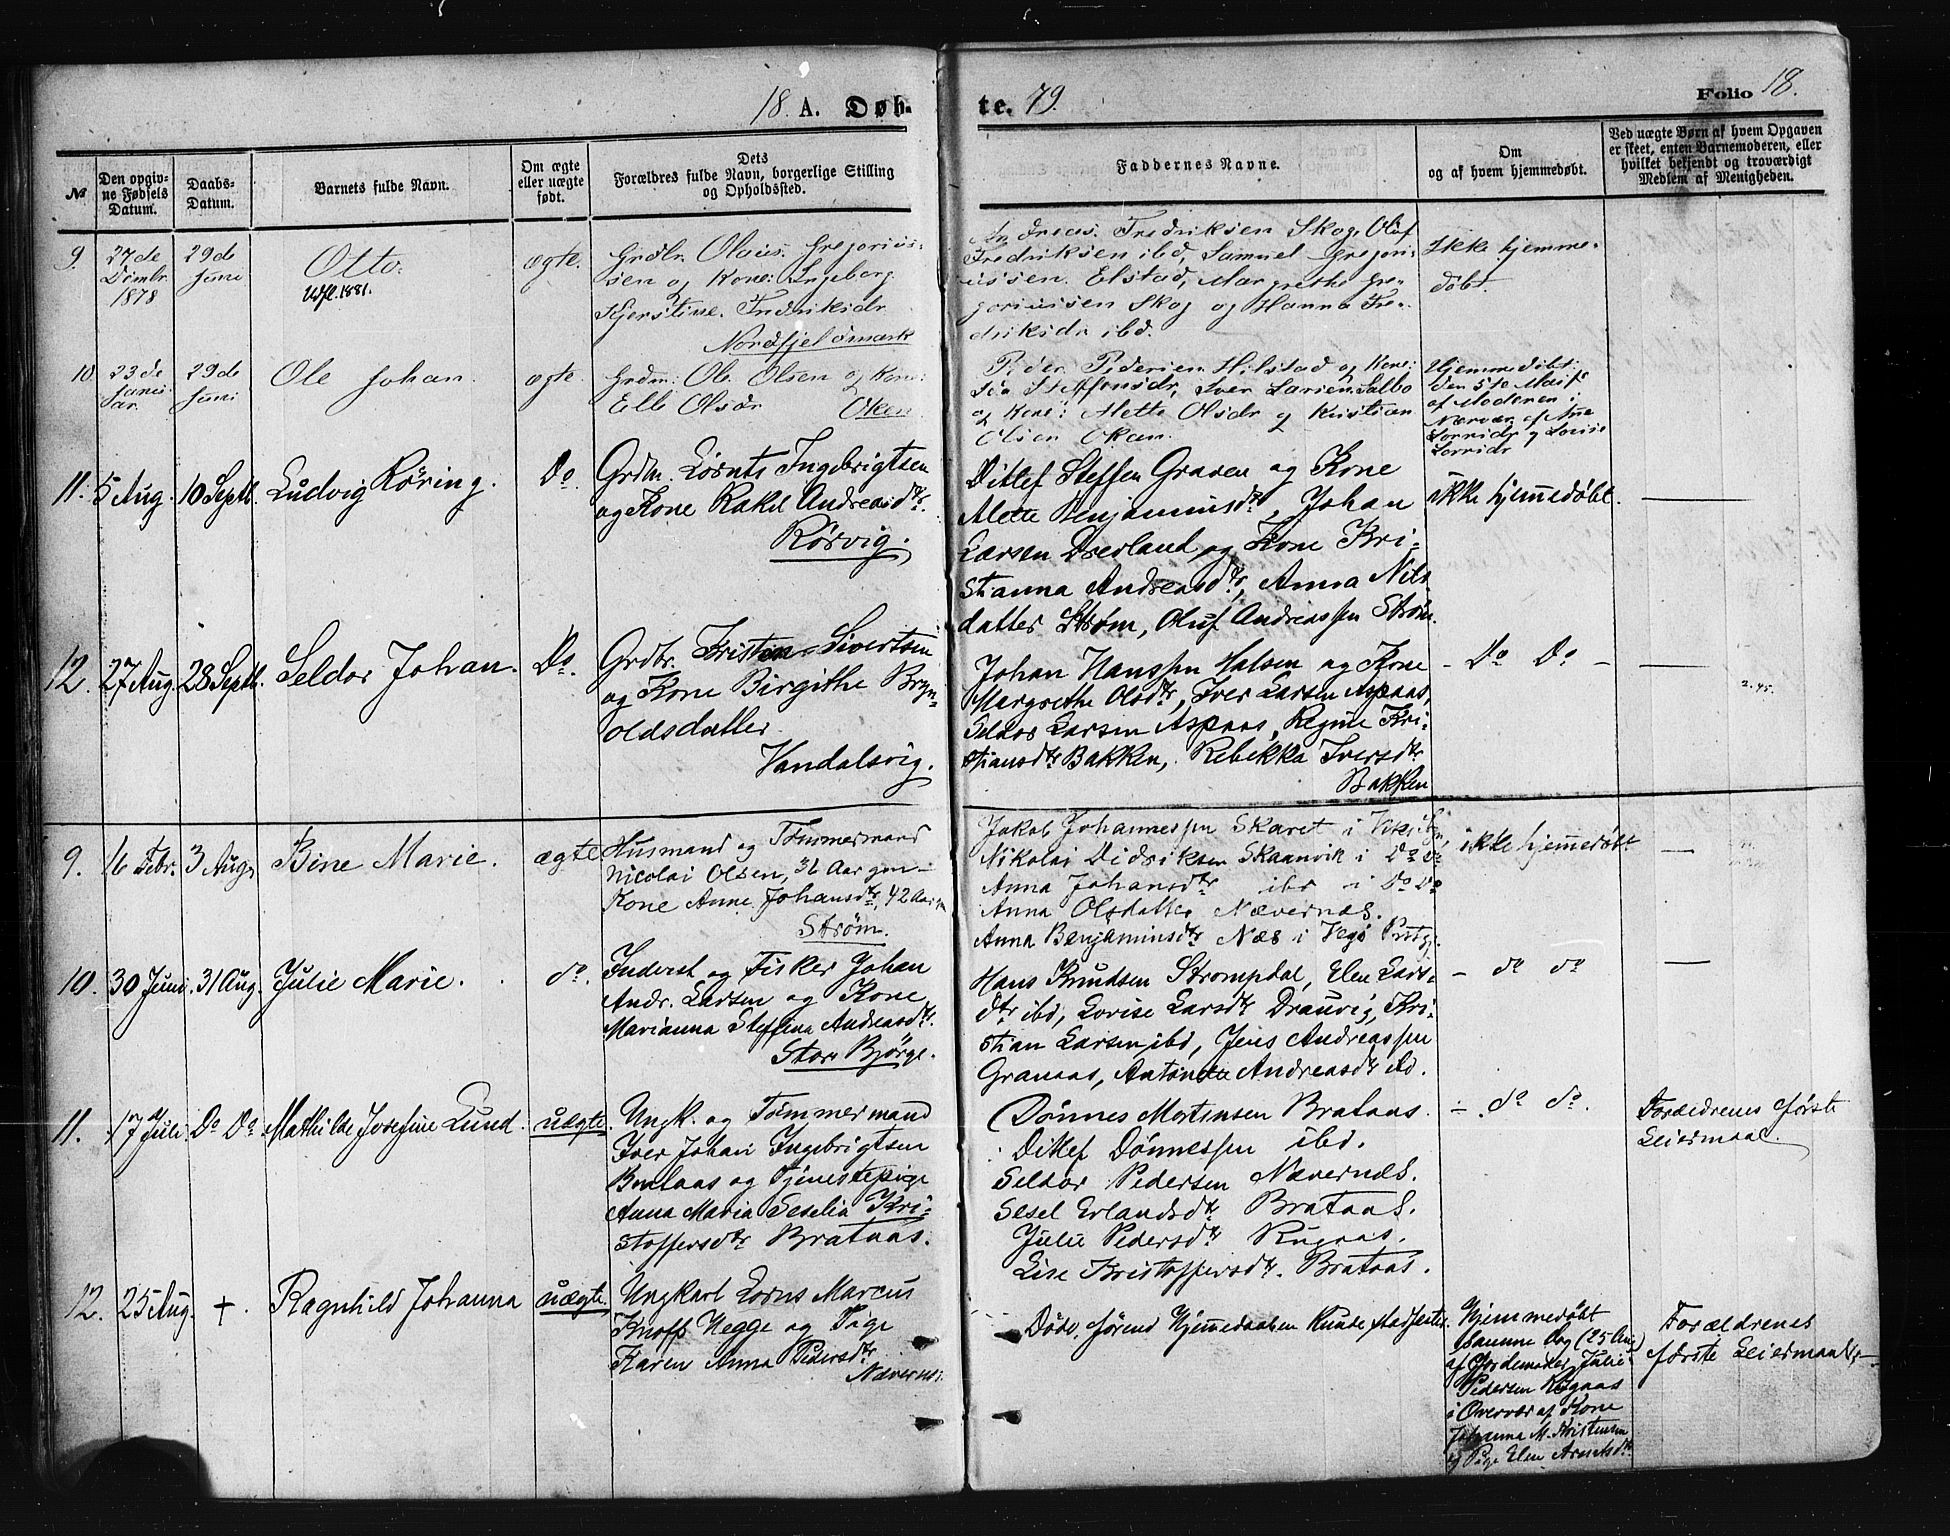 18 A. Døb-
te. 79.
Folio 18.
№
Den opgiv-
ne Fødsels
Datum.
Daabs-
Datum.
Barnets fulde Navn.
Om ægte
eller uægte
født.
Dets
Forældres fulde Navn, borgerlige Stilling
og Opholdssted.
Faddernes Navne.
Om
og af hvem hjemmedøbt.
Ved uægte Børn af hvem Opgaven
er skeet, enten Barnemoderen, eller
hvilket bekjendt og troværdigt
Medlem af Menigheden.
9.
27de
Dcmbr.
1878
29de
Juni
Otto.
Udfl. 1881.
ægte.
Grdbr. Olaus Gregorius-
sen og Kone: Ingeborg
Kjerstine Fredriksdr
Nordfjelømark
Andreas Fredriksen Skog, Oluf
Fredriksen ibd, Samuel Gregori-
ussen Elstad, Margrethe Gre-
goriussen Skog og Hanna Fre-
driksdr ibd.
Ikke hjemme-
døbt.
10
23de
Janu-
ar.
29de
Juni
Ole Johan.
ægte.
Grdm: Ole Olsen og Kone:
Elle Olsdr Oken.
Peder Pedersen Hilstad og Kone:
Steffensdr, Iver Larsen Salbo
og Kone: Alette Olsdr og Kristian
Olsen Okan.
Hjemmedøbt
den 5te Mai
af Moderen i
Nærvær af Ane
og Lovise
11.
5 Aug.
10 Septb.
Ludvig Röring.
Do.
Grdm. Lørnts Ingebrigtsen
og Kone Rakel Andreasdtr.
Rørvig.
Ditlef Steffen Graven og Kone
Alette Benjaminsdtr, Johan
Larsen Drevland og Kone Kri-
stianna Andreasdtr, Anna Nils
datter Strøm, Oluf Andreassen Strøm.
ikke hjemedøbt.
12.
27 Aug.
28 Septb.
Seldor Johan.
Do.
Grdbr. Kristen Sivertsen
og Kone Birgithe Bryn-
oldsdatter
Vandalsvig.
Johan Hanssen Halsen og Kone
Margrethe Olsdtr, Iver Larsen Aspaas,
Seldor Larsen Aspaas, Regine Kri-
stiansdtr Bakken, Rebekka Iversdtr
Bakken
- Do Do -
2.45.
9.
16 Febr.
3 Aug.
Bine Marie.
ægte
Husmand og Tømmermand
Nicolai Olsen, 32 Aar gm.
Kone Anne Johansdtr, 42 Aar
Strøm.
Jakob Johannessen Skaret i
Nikolai Didriksen Skaanvik i Do Do
Anna Johansdtr ibd i Do Do
Anna Olsdatter Nævernes.
Anna Benjaminsdtr Næs i Vegø
ikke hjemedøbt
10.
30 Juni.
31 Aug.
Julie Marie.
do.
Inderst og Fisker Johan
Andr. Larsen og Kone
Marianna Steffena Andreasdtr.
Store Bjørge.
Hans Knudsen Strompdal, Elen Lars-
dtr ibd, Lovise Larsdtr Drauvig, Kri-
stian Larsen ibd, Jens Andreassen
Granaas, Antonette Andreasdtr ibd.
- do do
11.
17 Juli
Do Do
Mathilde Josefine Lund.
uægte.
Ungk. og Tømmermand
Iver Johan Ingebrigtsen
Brataas og Tjenestepige
Anna Maria Seselia Kri-
stoffersdtr Brataas.
Dønnes Mortensen Brataas.
Ditlef Dønnessen ibd.
Seldor Pedersen Nævernes.
Sesel Erlandsdtr Brataas.
Julie Pedersdtr Rugaas.
Lise Kristoffersdtr. Brataas.
-. do do.
Forældrenes første
Leiermaal.
12.
25 Aug.
+.
Ragnhild Johanna
uægte.
Ungkarl Lorns Marcus
Knoff Hegge og Pige
Karen Anna Pedersdtr
Nævernes.
Døde, førend Hjemedaaben kunde stadfestes.
Hjemmedøbt
samme Dag (25 Aug)
af Jordemoder Julie
Pedersen Rugaas
i Overvær af Kone
Johanna M. Kristensen
og Pige Elen Arntsdtr.
Forældrenes
første Leiermaal.